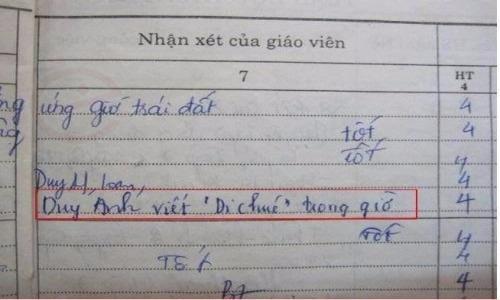 Nhận xét của giáo viên
7
HT
4
ứng giờ trái đất
4
tốt
4
tốt
4
4
Duy Anh viết "Dichmé" trong giờ
4
Tốt
4
TỐT
4
4